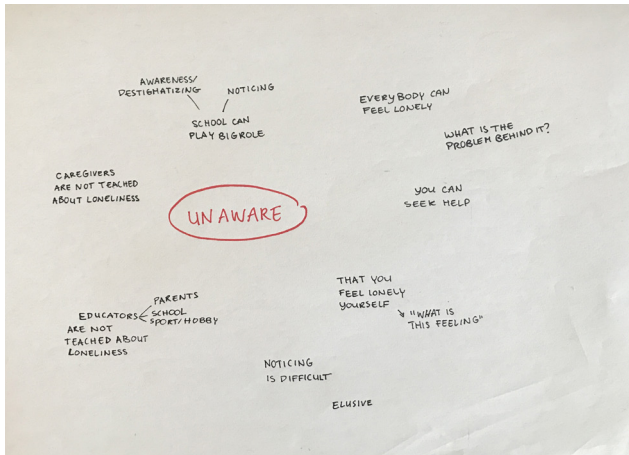 AWARENESS/
DESTIGMATIZING
NOTICING
SCHOOL CAN
PLAY BIG ROLE
EVERYBODY CAN
FEEL LONELY
WHAT IS THE
PROBLEM BEHIND IT?
CAREGIVERS
ARE NOT TEACHED
ABOUT LONELINESS
UNAWARE
YOU CAN
SEEK HELP
THAT YOU
FEEL LONELY
YOURSELF
"WHAT IS
THIS FEELING"
PARENTS
EDUCATORS SCHOOL
SPORT/HOBBY
ARE NOT
TEACHED ABOUT
LONELINESS
NOTICING
IS DIFFICULT
ELUSIVE